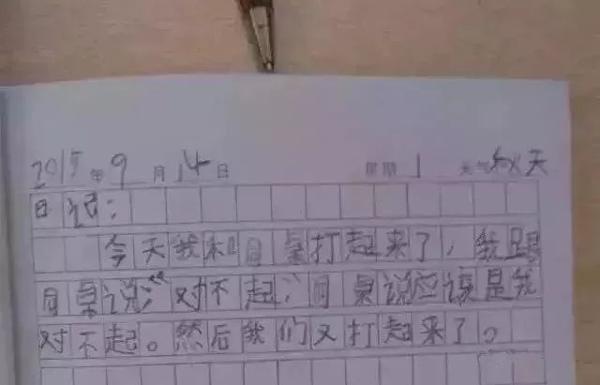 2015年9月14日 星期1 天气秋天
日记：
今天我和同桌打起来了，我跟
同桌说：“对不起，同桌说应该是我
对不起。然后我们又打起来了。